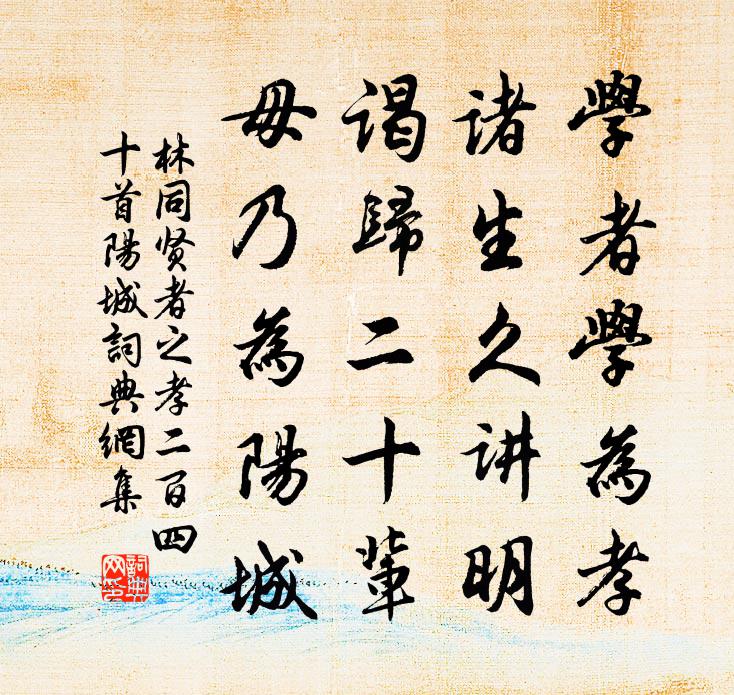 學者學為孝
诸生久讲明
谒歸二十輩
毋乃為陽城
林同贤者之孝二百四
十首陽城詞典網集
詞典网印